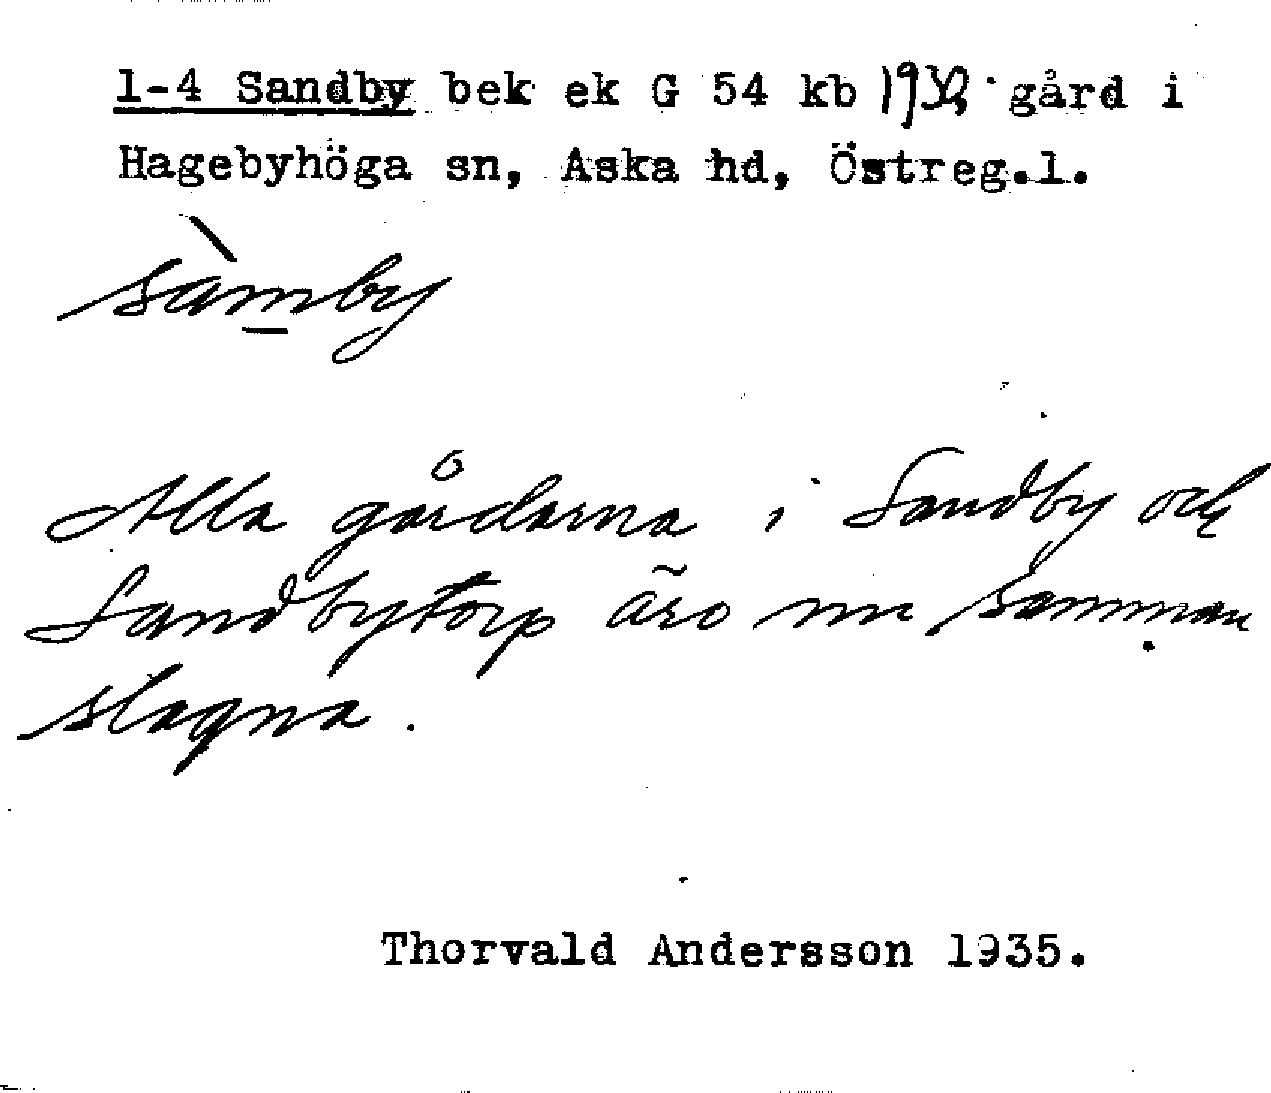 1-4 Sandby bek ek G 54 kb gård i
Hagebyhöga sn, Aska hd, Östreg.l.
sàmby
Alla gårdarna i Sandby och
Sandbytorp äro nu samman
slagna.
Thorvald Andersson 1935.